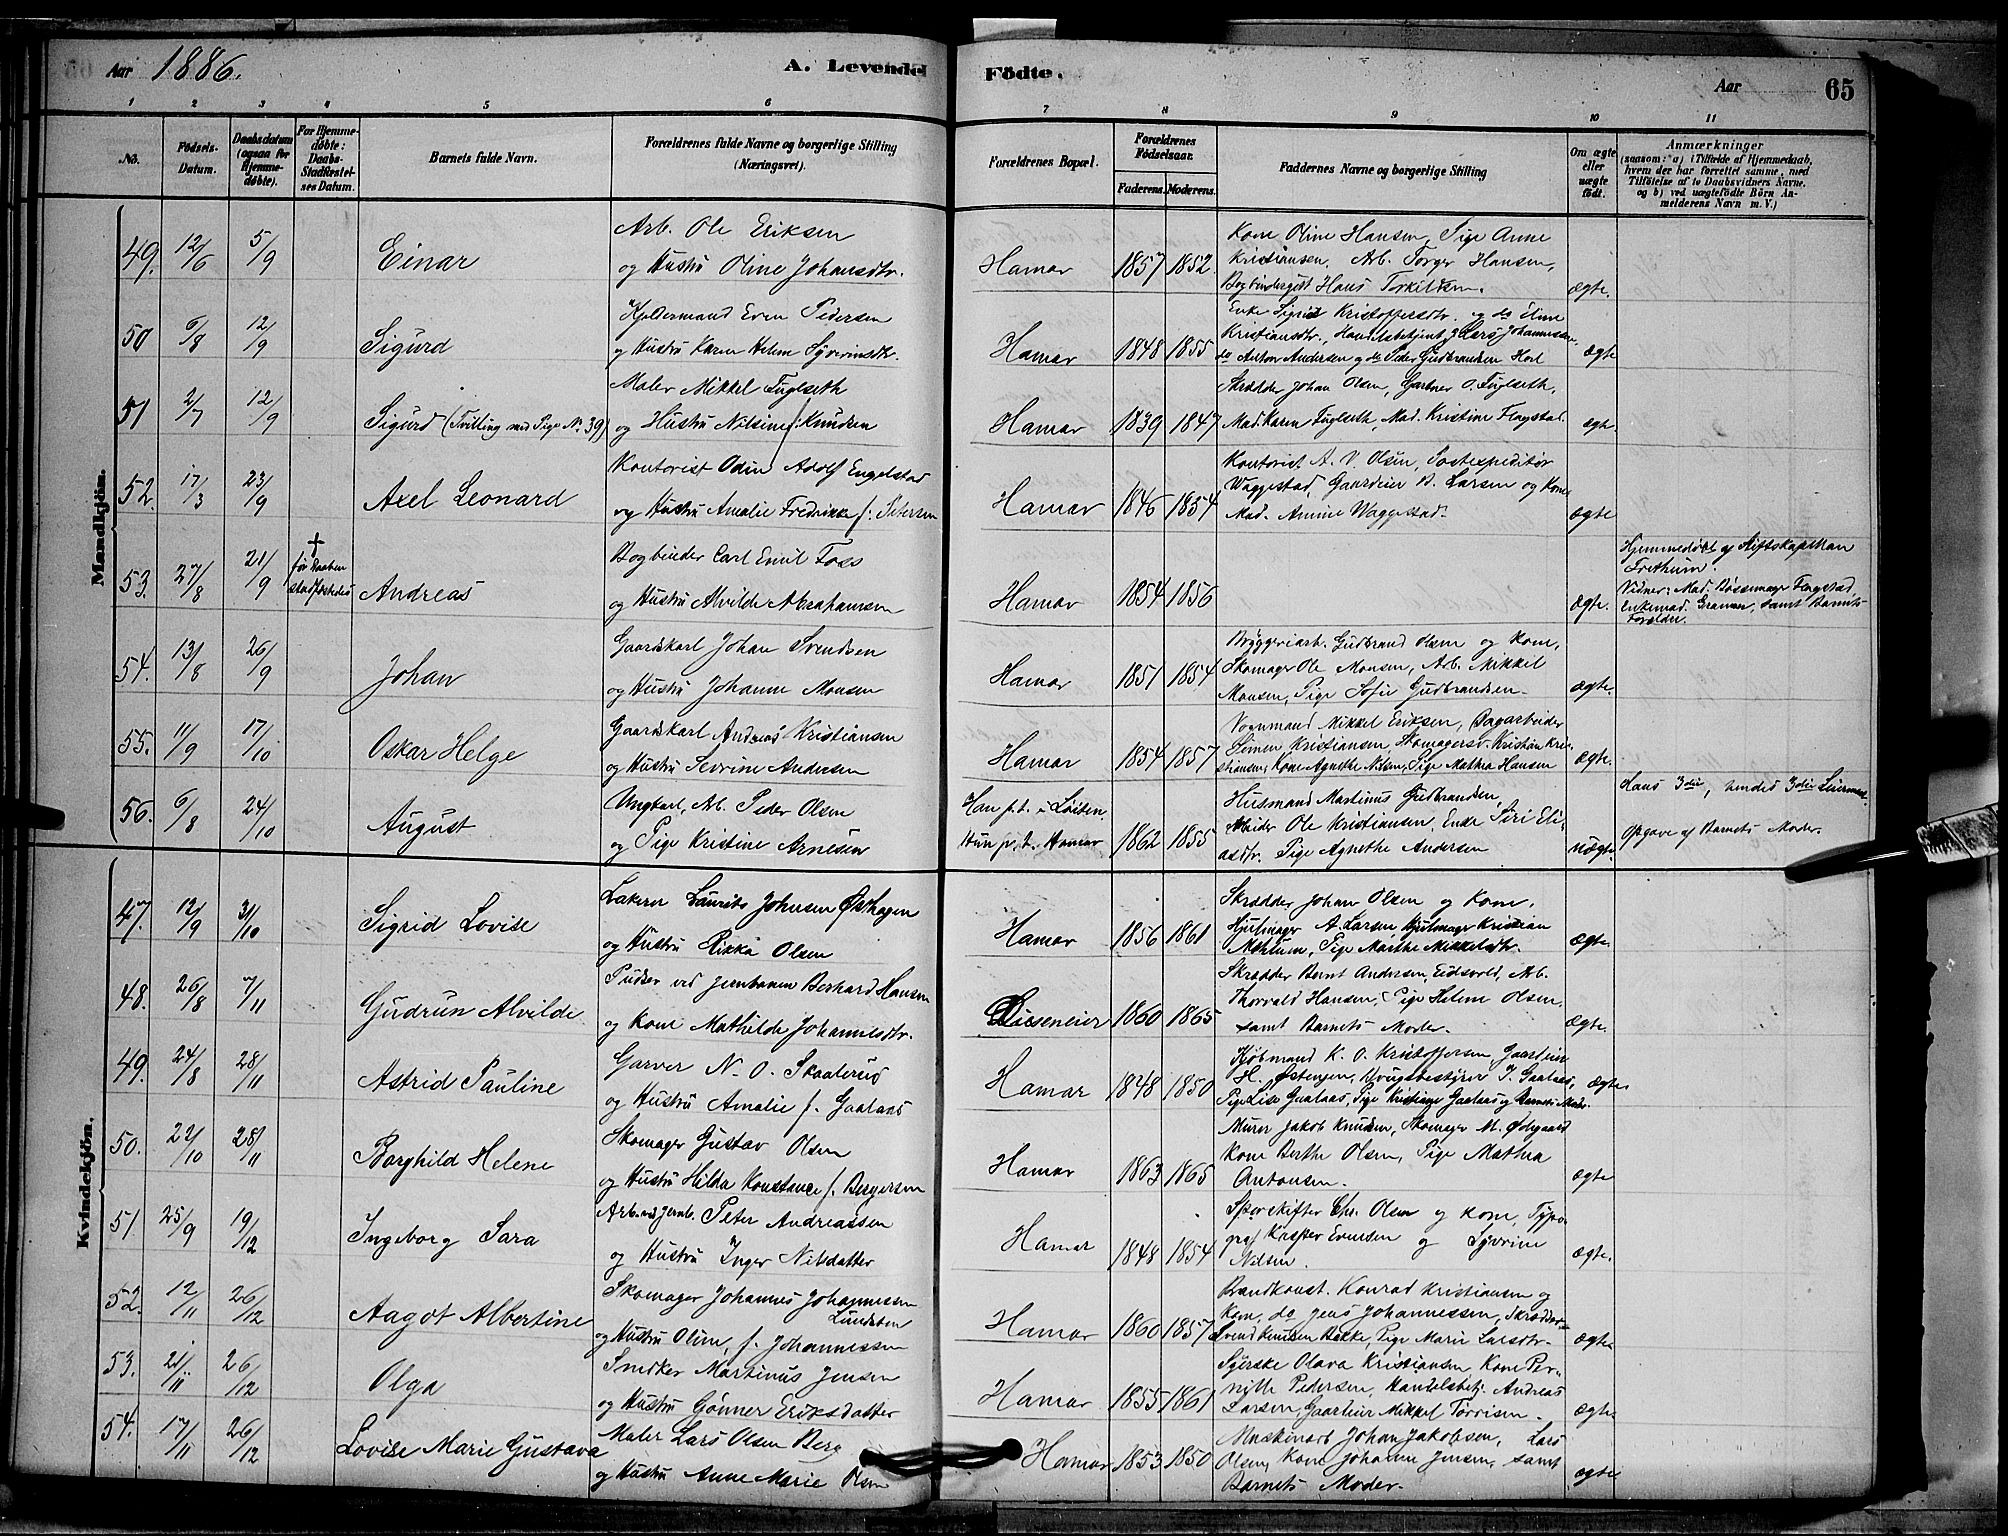 Aar 1886.
A. Levende Födte.
Aar
65
1 2 3 4 5 6 7 8 9 10 11
No.
Födsels-Datum.
Daabsdatum (ogsaa for Hjemme-döbte).
For Hjemme-döbte: Daabs-Stadfæstelses Datum.
Barnets fulde Navn.
Forældrenes fulde Navne og borgerlige Stilling (Næringsvei).
Forældrenes Bopæl.
Forældrenes Födselsaar.
Faderens. Moderens.
Faddernes Navne og borgerlige Stilling
Om ægte eller uægte födt.
Anmærkninger
(saasom: a) i Tilfælde af Hjemmedaab, hvem der har forrettet samme, med Tilföielse af to Daabsvidners Navne, og b) ved uægtefödte Börn Anmelderens Navn m. V.)
Mandkjön.
49. 12/6 5/9 Einar
Arb. Ole Eriksen
og Hustru Oline Johansdtr.
Hamar 1857 1852
Kone Oline Hansen, Pige Anne
Kristiansen, Arb. Torger Hansen,
Bogbindergst Hans Torkildsen.
ægte.
50 6/8 12/9 Sigurd
Kjeldermand Even Pedersen
og Hustru Karen Helene Syverinsdtr.
Hamar 1848 1855
Enke Sigrid Kristoffersdtr. og do Eline
Kristiansdtr., Handelsbetjent Lars Johannessen,
do Anton Andersen og do Peder Gudbrandsen Hoel
ægte
51 2/7 12/9 Sigurd (Tvilling med Pige No. 39)
Maler Mikkel Fuglseth
og Hustru Nilsine f. Knudsen
Hamar 1839 1847
Skrædder Johan Olsen, Gartner O. Fuglseth,
Mad. Karen Fuglseth, Mad. Kristine Flagstad.
ægte
52. 17/3 23/9 Axel Leonard
Kontorist Odin Adolf Engelstad
og Hustru Amalie Fredrikke f. Petersen
Hamar 1846 1854
Kontorist A. V. Olsen, Postexpeditör
Waggestad, Gaardeier B. Larsen og Kone
Mad. Amine Waggestad.
ægte
53. 27/8 21/9 † før Daaben stadfæstedes Andreas
Bogbinder Carl Emil Foss
og Hustru Alvilde Abrahamsen
Hamar 1854 1856
ægte.
Hjemmedøbt af Stiftskapellan
Frethum.
Vidner: Mad. Bøssemager Flagstad,
Enkemad. Gramen, samt Barnets
Forældre.
54. 13/8 26/9 Johan
Gaardskarl Johan Svendsen
og Hustru Johanne Monsen
Hamar 1851 1854
Bryggeriarb. Gudbrand Olsen og Kone,
Skomager Ole Monsen, Arb. Mikkel
Monsen, Pige Sofie Gudbrandsen.
ægte.
55. 11/9 17/10 Oskar Helge
Gaardskarl Andreas Kristiansen
og Hustru Sevrine Andersen
Hamar 1854 1857
Vognmand Mikkel Eriksen, Dagarbeider
Simen Kristiansen, Skomagersv. Kristian Kri-
stiansen, Kone Agnethe Nilsen, Pige Mathea Hansen
ægte.
56. 6/8 24/10 August
Ungkarl, Arb. Peder Olsen
og Pige Kristine Arnesen
Han p. t. i Løiten
Hun p. t. Hamar 1862 1855
Husmand Martinus Gudbrandsen,
Arbeider Ole Kristiansen, Enke Siri Eli-
asdtr. Pige Agnethe Andersen
uægte.
Hans 3die, hendes 3die Leiermaal.
Opgave af Barnets Moder.
Kvindekjön.
47. 12/9 31/10 Sigrid Lovise
Lakerer Laurits Johnsen Østhagen
og Hustru Rikka Olsen
Hamar 1856 1861
Skrædder Johan Olsen og Kone,
Hjulmager A. Larsen Hjulmager Kristian
Mohtum, Pige Marthe Mikkelsdtr.
ægte.
48. 26/8 7/11 Gudrun Alvilde
Pudser ved Jernbanen Berhard Hansen
og Kone Mathilde Johannesdtr.
Disseneier 1860 1865
Skrædder Bernt Andersen, Eidsvold, Arb.
Thorvald Hansen, Pige Helene Olsen,
samt Barnets Moder.
ægte.
49. 24/8 28/11 Astrid Pauline
Garver N. O. Skaalerud
og Hustru Amalie f. Gaalaas
Hamar 1848 1850
Kjøbmand K. O. Kristoffersen, Gaardeier
H. Østengen, Brugsbestyrer J. Gaalaas,
Pige Lise Gaalaas, Pige Kristiane Gaalaas og Barnets Moder.
ægte.
50. 22/10 28/11 Borghild Helene
Skomager Gustav Olsen
og Hustru Hilda Konstance f. Bergersen
Hamar 1863 1865
Murer Jakob Knudsen, Skomager M. Ødegaard
Kone Berthe Olsen, Pige Mathea
Antonsen.
ægte
51. 25/9 19/12 Ingeborg Sara
Arb. ved Jernb. Peter Andreassen
og Hustru Inger Nilsdatter
Hamar 1848 1854
Sporskifter Chr. Olsen og Kone, Typo-
graf Kristen Evensen og Syvrine
Nilsen.
ægte.
52. 12/11 26/12 Aagot Albertine
Skomager Johannes Johannessen
Lundsben
og Hustru Oline, f. Johannessen
Hamar 1860 1857
Brandkonst. Konrad Kristiansen og
Kone, do Jens Johannessen, Skrædder
Svend Knudsen Bakke, Pige Marie Larsdtr.
ægte
53. 21/11 26/12 Olga
Snedker Martinus Jensen
og Hustru Gønner Eriksdatter
Hamar 1855 1861
Syerske Olava Kristiansen Kone Per-
nille Pedersen, Handelsbetj. Andreas
Larsen, Gaardeier Mikkel Torrisen.
ægte.
54. 17/11 26/12 Lovise Marie Gustava
Maler Lars Olsen Berg
og Hustru Anne Marie Olsen
Hamar 1853 1850
Maskinarb Johan Jakobsen, Lars
Olsen, Kone Johanne Jensen, samt
Barnets Moder.
ægte